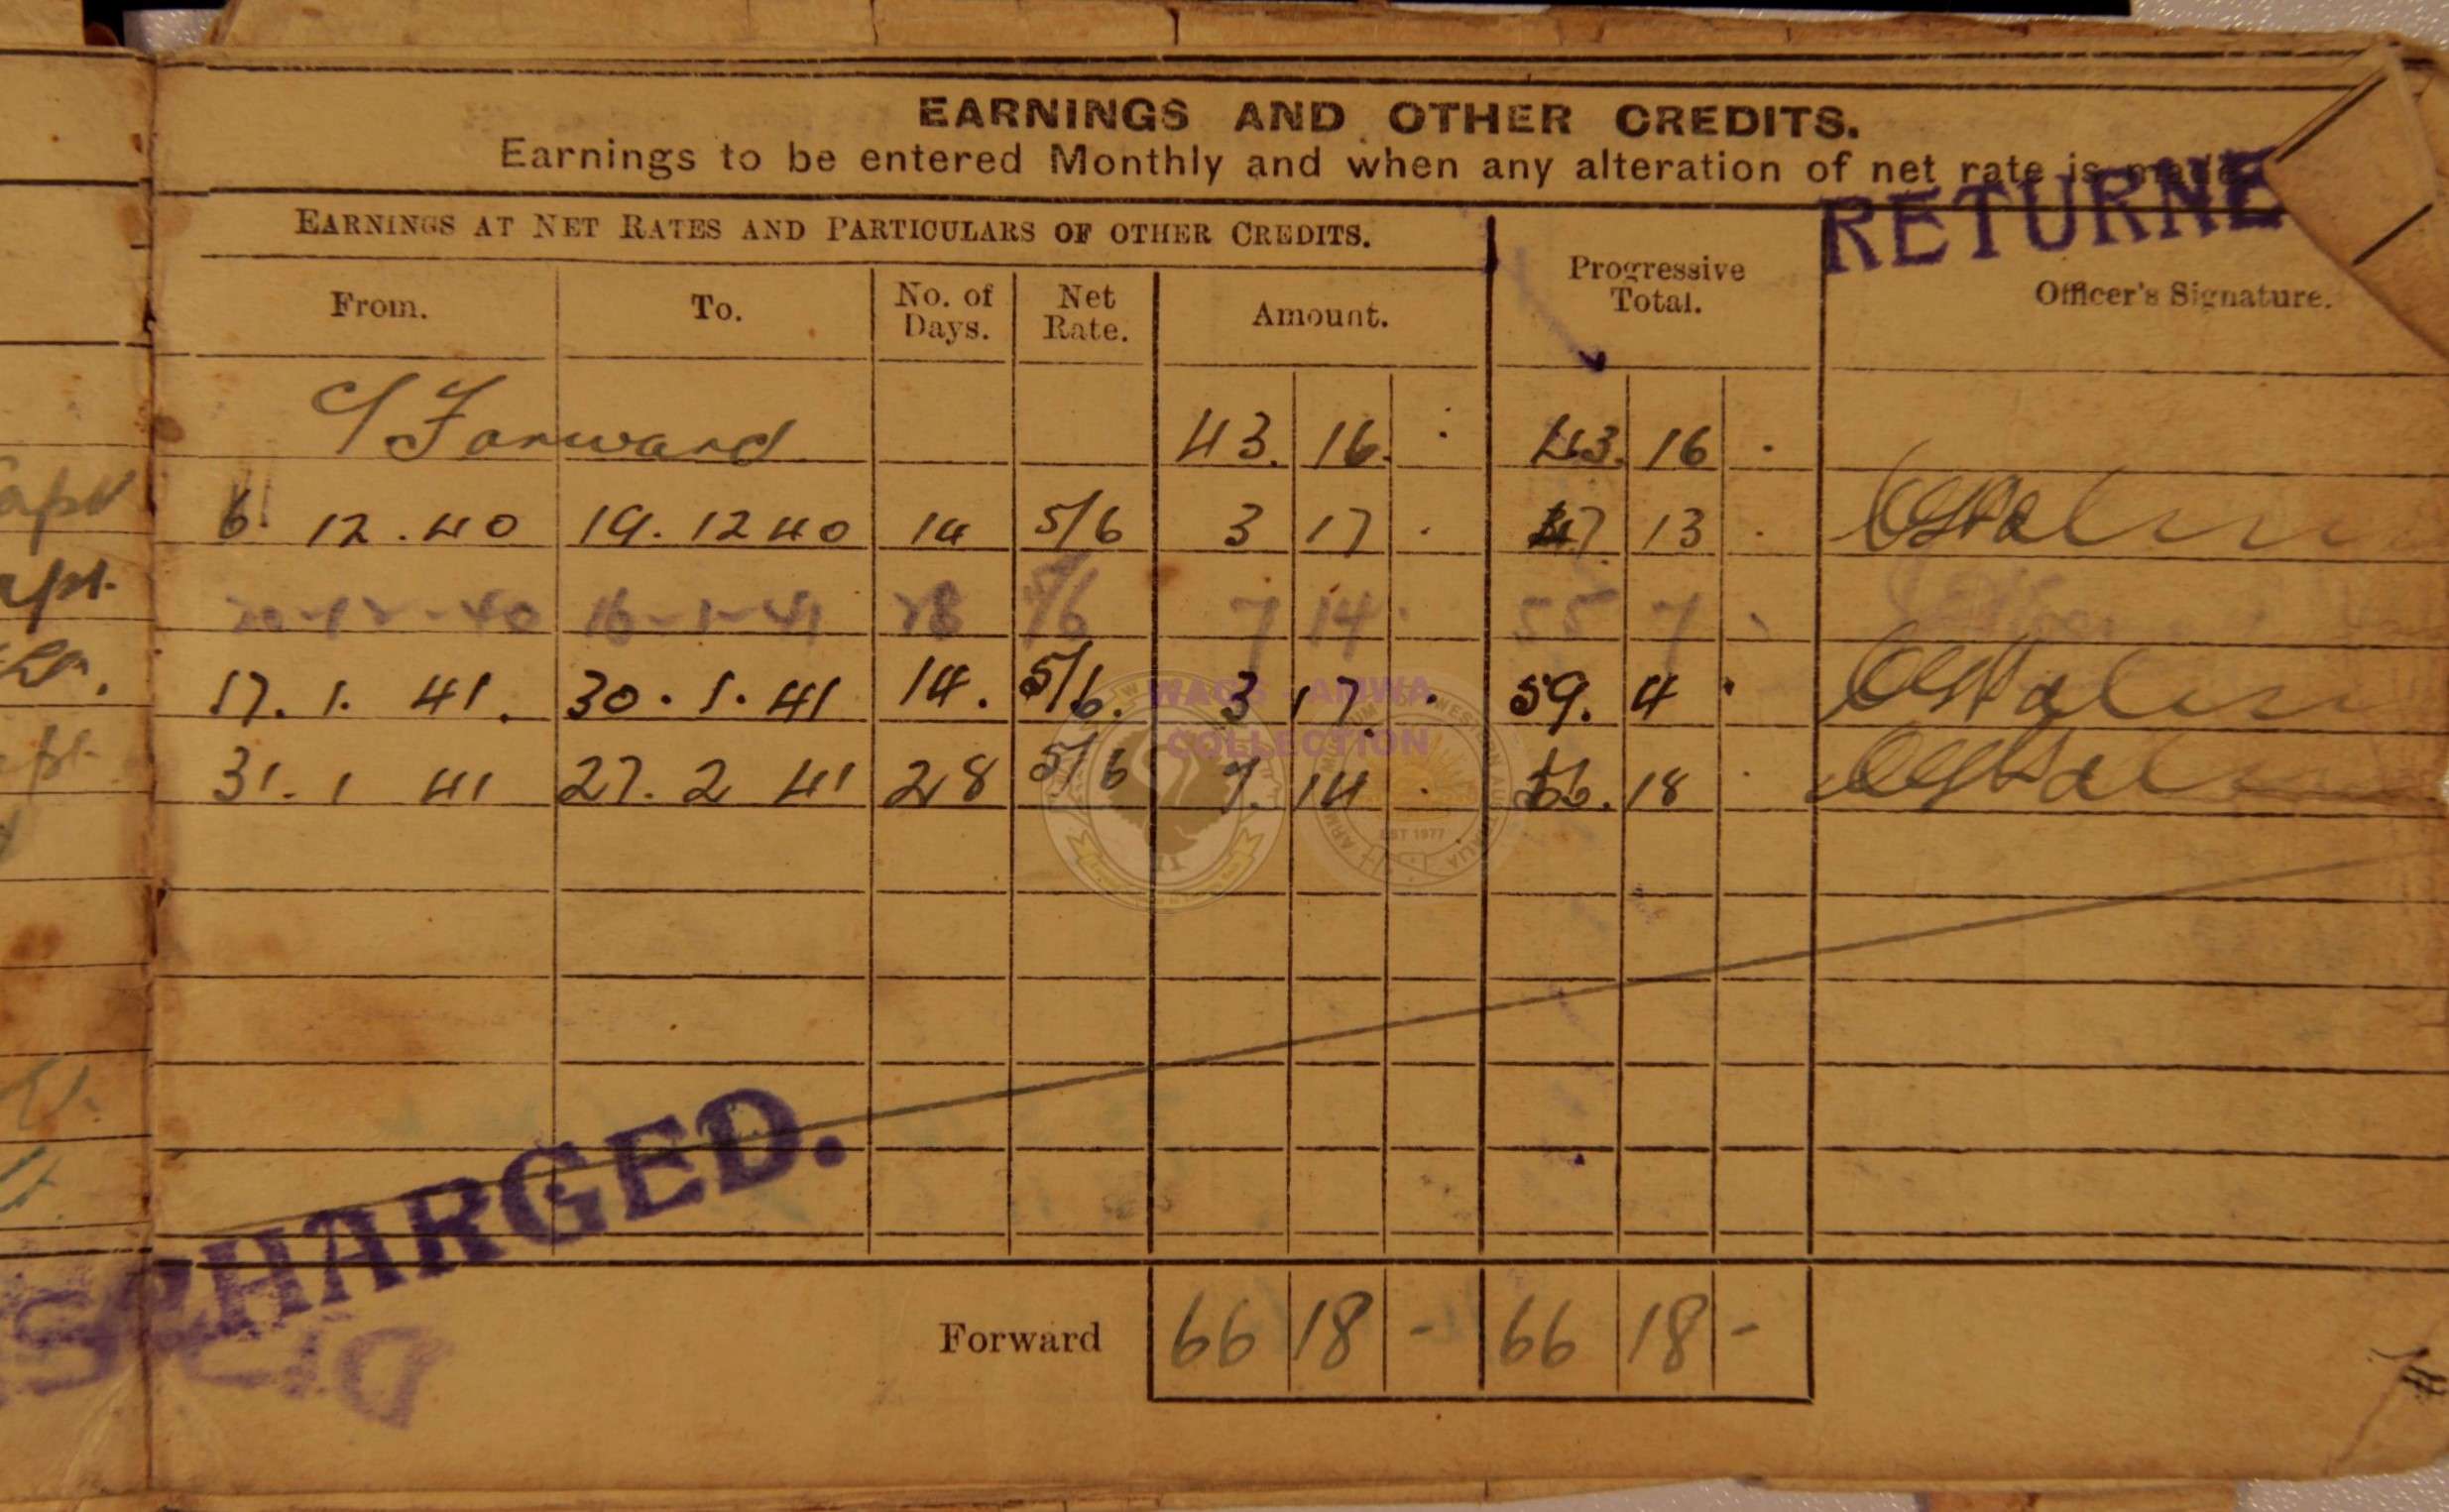 EARNINGS AND OTHER CREDITS.
Earnings to be entered Monthly and when any alteration of net rate is made
RETURNE
EARNINGS AT NET RATES AND PARTICULARS OF OTHER CREDITS.
Progressive Total.
Officer's Signature.
From. To. No. of Days. Net Rate. Amount.
C/Forward 43. 16. 43. 16 .
6 12.40 19.12 40 14 5/6 3 17 . 47 13 .
20-12-40 16-1-41 28 5/6 7 14 . 55 7
17.1.41. 30.1.41 14. 5/6. 3 17 . 59. 4 .
31.1 41 27.2 41 28 5/6 7. 14 . 66. 18
WAGS - AMWA
COLLECTION
EST 1977
CHARGED.
Forward 66 18 - 66 18 -